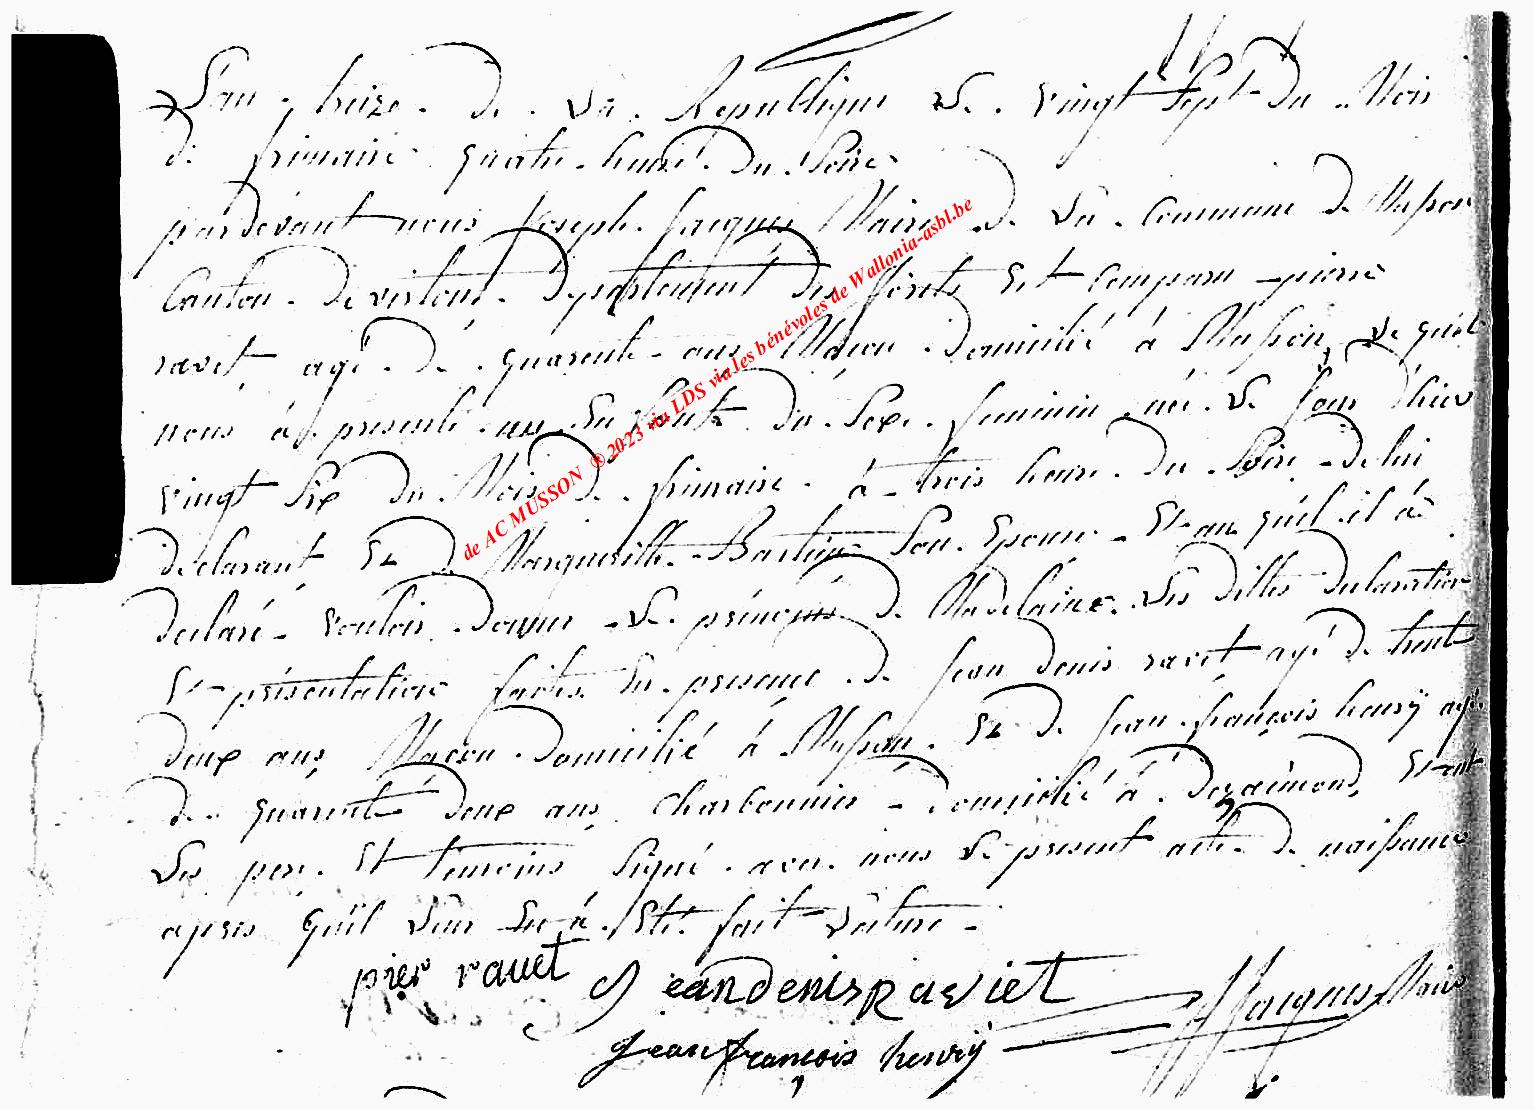 L'an treize de La Republique Le vingt sept du Mois
de frimaire quatre heure du Soire
pardevant nous Joseph Jacques Maire de La Commune de Musson
Canton de virton departement des forêts Est Comparu pierre
ravet agé de quarente ans Maçon domicilié à Musson, Le quel
nous à presenté un Enfant du Sexe feminin née Le Jour d'hier
vingt Six du Mois de frimaire à trois heure du Soire de lui
declarant Et de Margueritte Bartin Son Epouse Et au quel il à
declaré vouloir donner Le prénoms de Madelaine. Les dittes declaration
Et présentation faites En presence de Jean denis ravet agé de trente
deux ans Maçon domicilié à Musson. Et de Jean françois henrÿ agé
de quarente deux ans Charbonnier domicilié à Et ont
Les pere Et temoins Signé avec nous Le present acte de naissance
apres quil Leur En à Eté fait Lecture
pier rauet Jean Denis Raviet JJacques Maire
jean françois henrÿ
de AC MUSSON ®2023 via LDS via les bénévoles de Wallonia-asbl.be